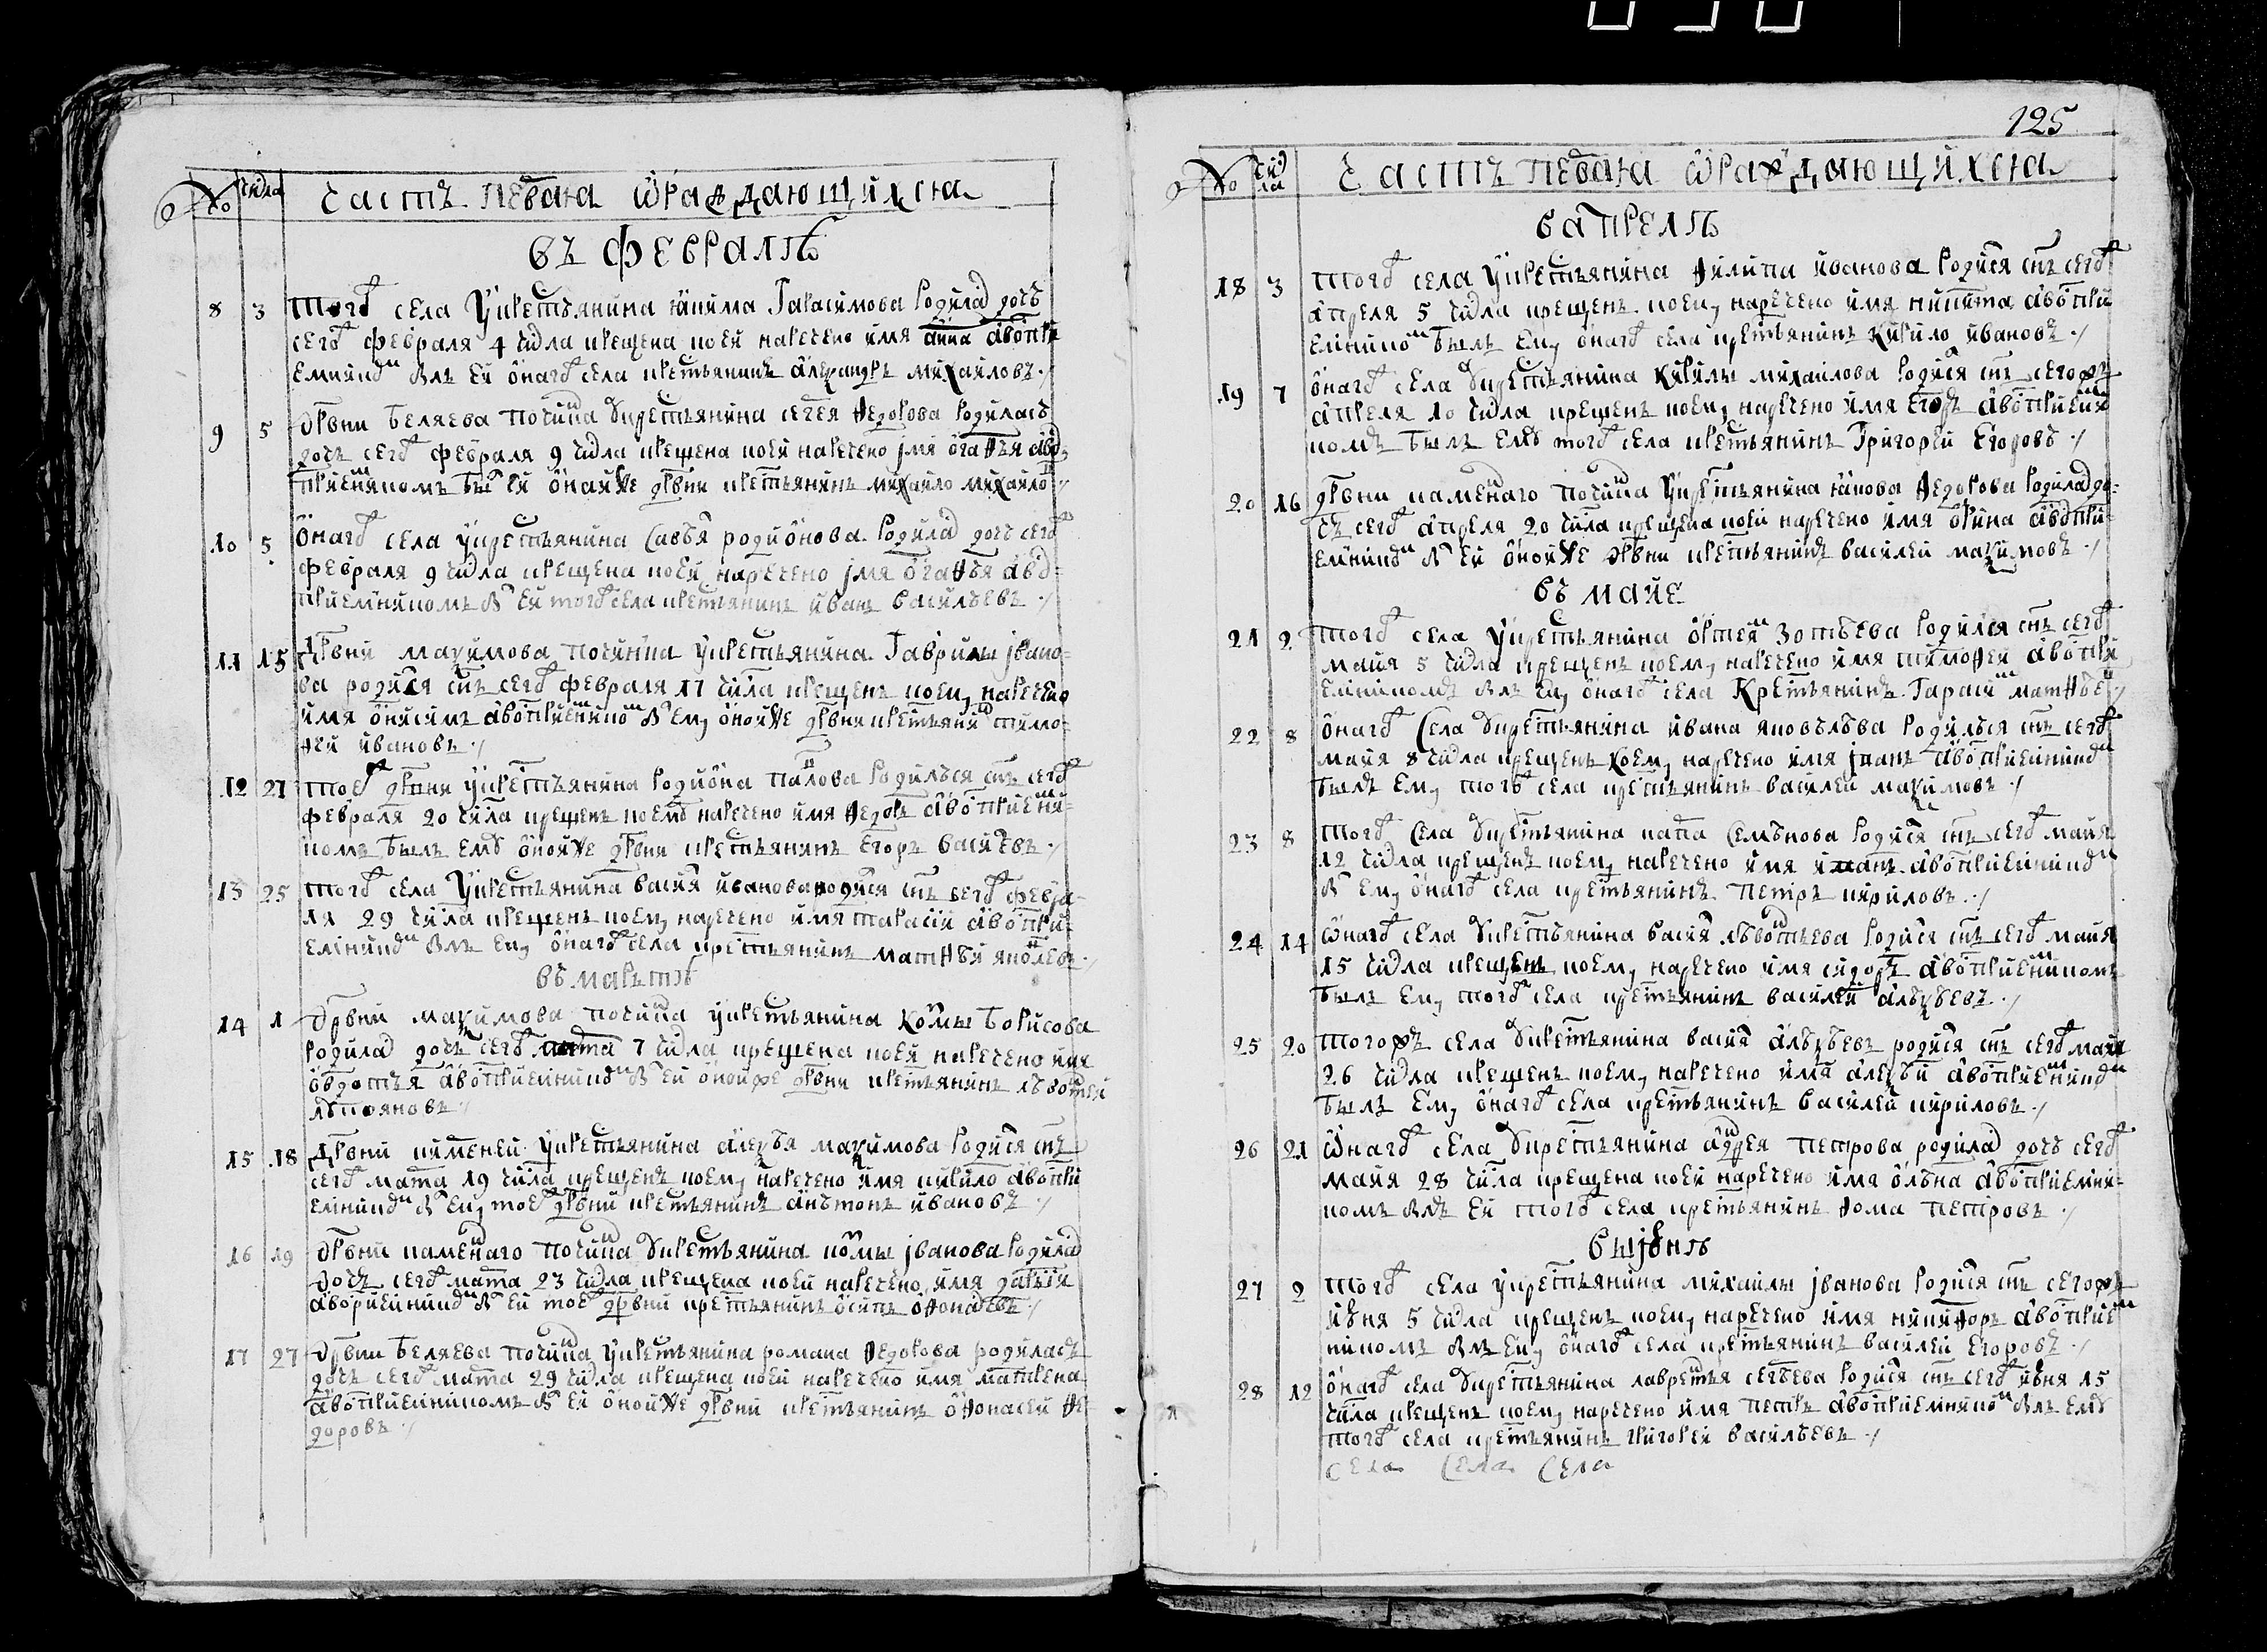 № числа часть первая ѿраждающихся
въ февралѣ
8 3 Тогож села у крестьянина якима Гарасимова родилас дочь
сегож февраля 4 числа крещена коей наречено имя анна авоспри
емником былъ ей онагож села крестьянинъ александръ михаиловъ ·/
9 5 дрвни беляева починка у крестьянина сегея федорова родиласъ
дочь сегож февраля 9 числа крещена коей наречено імя огафья авос
приемникомъ был ей онойже дрвни крестьянинъ михаило михаило
10 5 онагож села у крестьянина савъя родионова родилас дочь сегож
февраля 9 числа крещена коей наречено імя огафья авос=
приемникомъ бы ей тогож села крестьянинъ иванъ василъевъ ·/
11 15 Дрвни макимова починка у крестьянина Гаврилы івано=
ва родися снъ сегож февраля 17 числа крещенъ коему наречено
имя онисимъ авосприемником бы ему онойже дрвни крестьянин тимо=
фей ивановъ ·/
12 21 тоеж дрвни у крестьянина родиона павлова родилъся снъ сегож
февраля 20 числа крещенъ коему наречено имя федоръ авосприемни=
комъ былъ ему онойже дрвни крестьянинъ егоръ васильевъ ·/
13 25 тогож села у крестьянина васия иванова родися снъ сегож февра=
ля 29 числа крещенъ коему наречено имя тарасий авоспри=
емником былъ ему онагож села крестьянинъ матфѣй яковлевъ ·/
въ мартѣ
14 1 дрвни макимова починка у крестьянина козмы борисова
родилас дочь сегож марта 7 числа крещена коей наречено имя
овдотья авосприемником бы ей онойже дрвни крестьянинъ лѣвонтей
лѣпояновъ ·/
15 18 Дрвни ключей у крестьянина алексѣя макимова родися снъ
сегож марта 19 числа крещенъ коему наречено имя кирило авоспри
емником бы ему тоеж дрвни крестьянинъ анътонъ ивановъ ·/
16 19 дрвни каменнаго починка у крестьянина козмы іванова родилас
дочь сегож марта 23 числа крещена коей наречено имя дарія
авосприемником бы ей тоеж дрвни крестьянинъ осипъ офонасевъ ·/
17 27 дрвни беляева починка у крестьянина романа федорова родиласъ
дочь сегож марта 29 числа крещена коей наречено имя матрена
авосприемникомъ бы ей онойже дрвни крестьянинъ офонасей фе=
доровъ ·/
125
№ числа Часть первая ѿраждающихся
в апрелѣ
18 3 тогож села у крестьянина филипа иванова родися снъ сегож
апреля 5 числа крещенъ коему наречено имя никита авоспри
емником былъ ему онагож села крестьянинъ кирило ивановъ ·/
19 7 онагож села у крестьянина кирилы михаилова родися снъ сегожъ
апреля 10 числа крещенъ коему наречено имя егоръ авосприемни
комъ былъ ему тогож села крестьянинъ Григорей егоровъ ·/
20 16 дрвни каменнаго починка у крестьянина якова федорова родилас до=
чь сегож апреля 20 числа крещена коей наречено имя орина авоспри=
емником бы ей онойже дрвни крестьянинъ василей макимовъ ·/
въ майе
21 2 тогож села у крестьянина ортемя зотьева родился снъ сегож
майя 5 числа крещенъ коему наречено имя тимофей авоспри
емникомъ былъ ему онагож села Крестьянинъ Гарасим матфѣев ·/
22 8 онагож села у крестьянина ивана яковълѣва родилъся снъ сегож
майя 8 числа крещенъ коему наречено имя іванъ авосприемником
былъ ему тогож села крестьянинъ василей макимовъ ·/
23 8 тогож села у крестьянина карпа семънова родися снъ сегож майя
12 числа крещенъ коему наречено имя иванъ авосприемником
бы ему онагож села крестьянинъ петръ кириловъ ·/
24 14 ѿнагож села у крестьянина васия лѣвонтьева родися снъ сегож майя
15 числа крещенъ коему наречено имя сидоръ авосприемникомъ
былъ ему тогож села крестьянинъ василей алѣксѣевъ ·/
25 20 Тогожъ села у крестьянина васия алѣксѣевъ родися снъ сегож майя
26 числа крещенъ коему наречено имя алексѣй авосприемником
былъ ему онагож села крестьянинъ василей кириловъ ·/
26 21 ѿнагож села у крестьянина андрея петрова родилас дочь сегож
майя 28 числа крещена коей наречено имя олѣна авосприемни=
комъ былъ ей тогож села крестьянинъ фома петровъ ·/
въ иіюнѣ
27 2 тогож села у крестьянина михаилы іванова родися снъ сегожъ
июня 5 числа крещенъ коему наречено имя никифоръ авосприем
никомъ былъ ему онагож села крестьянинъ василей егоровъ ·/
28 12 онагож села у крестьянина лаврентья сергѣева родися снъ сегож июня 15
числа крещенъ коему наречено имя петръ авосприемником былъ ему
тогож села крестьянинъ григорей василѣевъ ·/
села села села